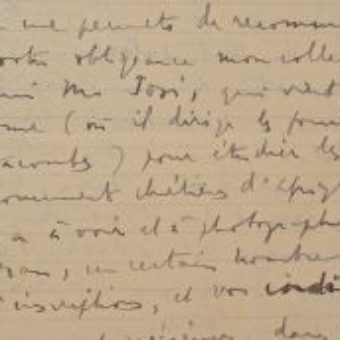 me permets de recomm
obligeance mon colle
Mr Josi, qui vient
(où il dirige les
acombes) pour étudier les
monument chrétiens d'Afriq
a à voir et à photographi
, un certain nombre
inscriptions, et vos indi
dans